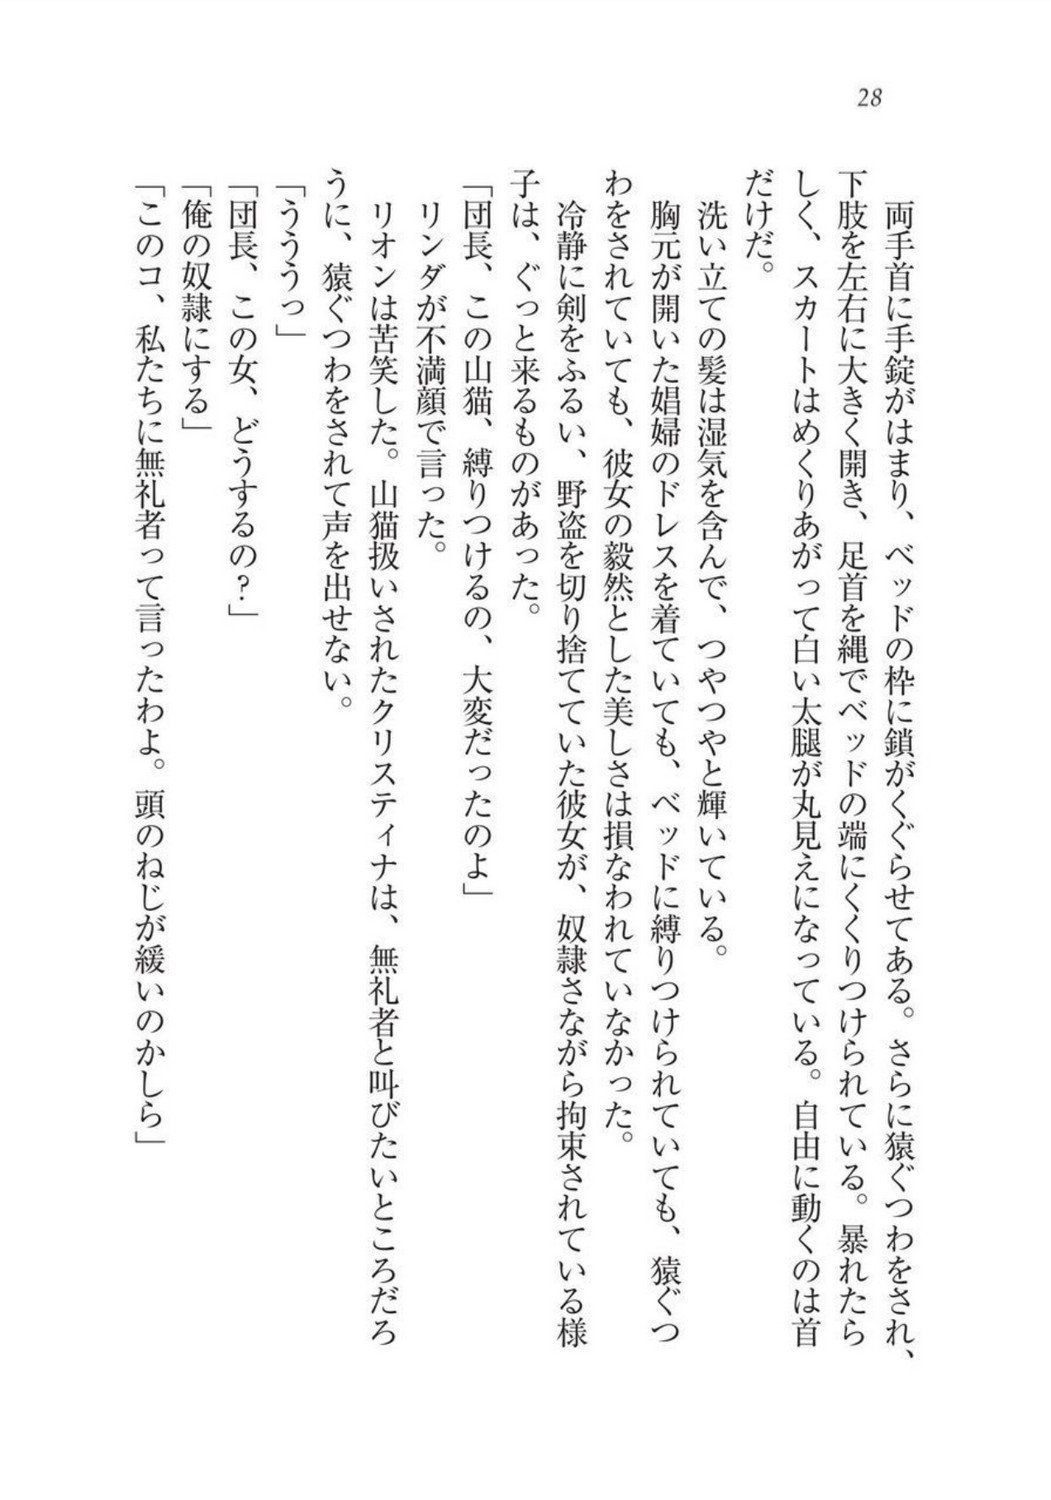 28
　両手首に手錠がはまり、ベッドの枠に鎖がくぐらせてある。さらに猿ぐつわをされ、
下肢を左右に大きく開き、足首を縄でベッドの端にくくりつけられている。暴れたら
しく、スカートはめくりあがって白い太腿が丸見えになっている。自由に動くのは首
だけだ。
　洗い立ての髪は湿気を含んで、つやつやと輝いている。
　胸元が開いた娼婦のドレスを着ていても、ベッドに縛りつけられていても、猿ぐつ
わをされていても、彼女の毅然とした美しさは損なわれていなかった。
　冷静に剣をふるい、野盗を切り捨てていた彼女が、奴隷さながら拘束されている様
子は、ぐっと来るものがあった。
「団長、この山猫、縛りつけるの、大変だったのよ」
　リンダが不満顔で言った。
　リオンは苦笑した。山猫扱いされたクリスティナは、無礼者と叫びたいところだろ
うに、猿ぐつわをされて声を出せない。
「うううっ」
「団長、この女、どうするの？」
「俺の奴隷にする」
「このコ、私たちに無礼者って言ったわよ。頭のねじが緩いのかしら」